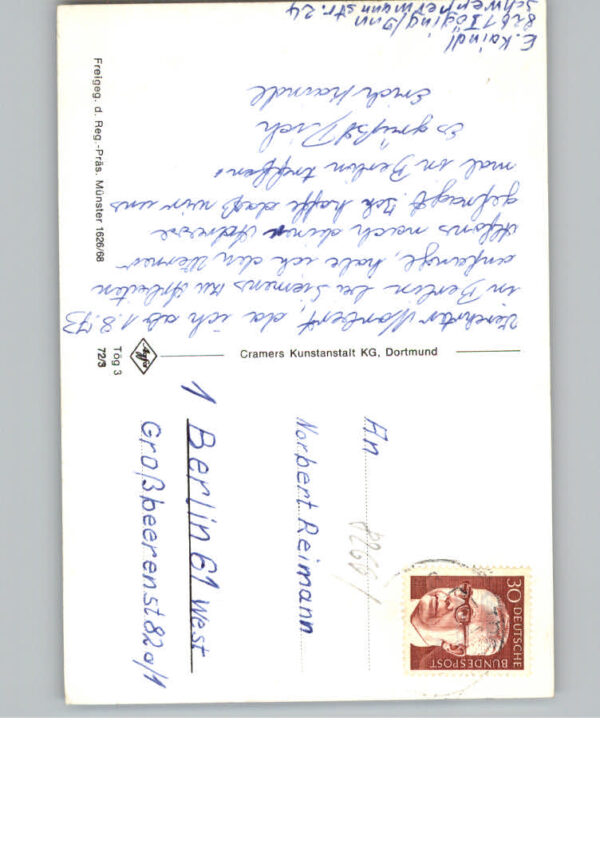 E. Kaindl
8261 Töging/Inn
Schweppermannstr. 24
Verehrter Norbert, da ich ab 1.8.73
in Berlin bei Siemens zu Arbeiten
anfange, habe ich den Werner
Alfons nach deiner Adresse
gefragt. Ich hoffe daß wir uns
mal in Berlin treffen!
Es grüßt Dich
Erich Kaindl
Freigeg. d. Reg.-Präs. Münster 1626/68
Cramers Kunstanstalt KG, Dortmund
Agfa
Tög 3
72/3
30 DEUTSCHE
BUNDESPOST
8261
An
Norbert Reimann
1 Berlin 61 West
Großbeerenst 82a/1